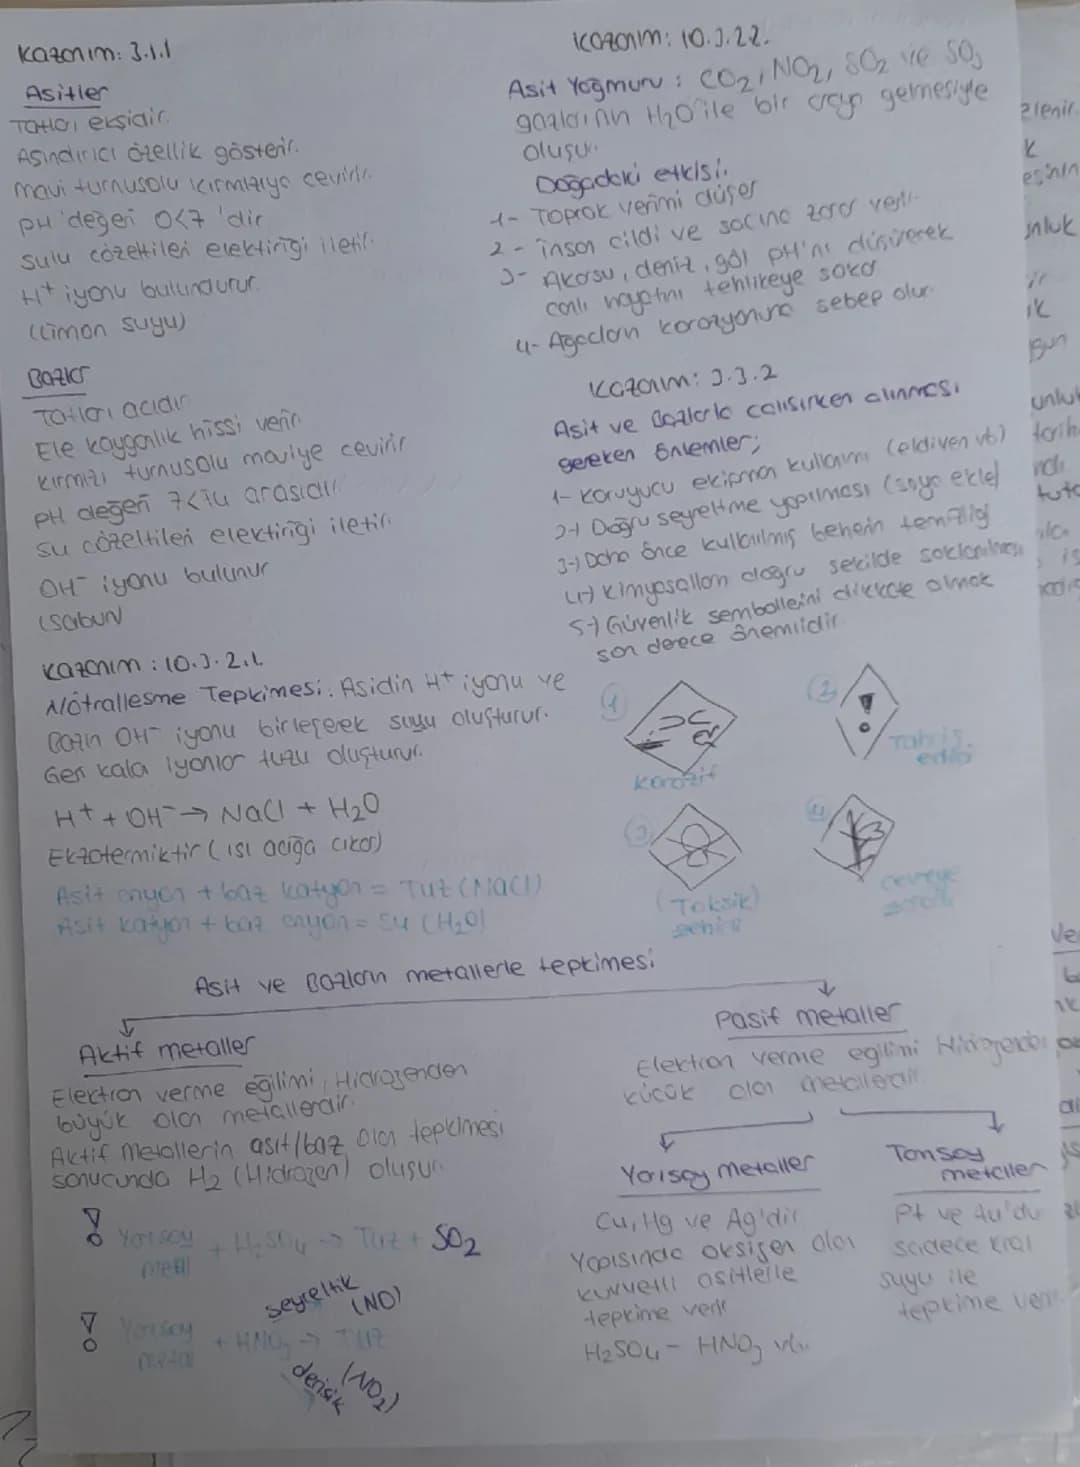 Kazanım: 3.1.1
Asitler
Tatları ekşidir.
Aşındırıcı özellik gösterir.
Mavi turnusolu kırmızıya çevirir.
pH 'değeri 0<7 'dir
Sulu çözeltileri elektiriği iletir.
H+ iyonu bulundurur.
(Limon suyu)
Bazlar
Tatları acıdır
Ele kayganlık hissi verir.
Kırmızı turnusolu maviye çevirir
pH değeri 7<14 arasıdır
Su çözeltileri elektiriği iletir.
OH⁻ iyonu bulunur
(Sabun)
Kazanım: 10.3.2.1.
Nötralleşme Tepkimesi: Asidin H+ iyonu ve
Bazın OH⁻ iyonu birleşerek suyu oluşturur.
Geri kala iyonlar tuzu oluşturur.
H+ + OH⁻ → NaCl + H₂O
Ekzotermiktir (ısı açığa çıkar)
Asit anyon + baz katyon = Tuz (NaCl)
Asit katyon + baz anyon = Su (H₂O)
Kazanım: 10.3.2.2.
Asit Yağmuru: CO₂, NO₂, SO₂ ve SO₃
gazlarının H₂O ile bir araya gelmesiyle
oluşur.
Doğadaki etkisi:
1- Toprak verimi düşer
2- insan cildi ve saçına zarar verir.
3- Akarsu, deniz, göl pH'nı düşürerek
canlı hayatını tehlikeye sokar
4- Ağaçların korozyonuna sebep olur.
Kazanım: 3.3.2
Asit ve Bazlarla çalışırken alınması
gereken önlemler;
1- Koruyucu ekipman kullanımı (eldiven vb)
2-) Doğru seyreltme yapılması (suya ekle)
3-) Daha önce kullanılmış beherin temizliği
4-) Kimyasalların doğru şekilde saklanılması
5-) Güvenlik sembollerini dikkate almak
son derece önemlidir.
1
Korozif
2
Tahriş
edici
3
(Toksik)
zehirli
4
çevreye
zararlı
Asit ve Bazların metallerle tepkimesi
Aktif metaller
Elektron verme eğilimi, Hidrojenden
büyük olan metallerdir.
Aktif Metallerin asit/baz olan tepkimesi
sonucunda H₂ (Hidrojen) oluşur.
! Yarısoy metal + H₂SO₄ → Tuz + SO₂
seyreltik (NO)
! Yarısoy metal + HNO₃ → Tuz
derişik (NO₂)
Pasif metaller
Elektron verme eğilimi Hidrojenden
küçük olan metallerdir.
Yarısoy metaller
Cu, Hg ve Ag'dir
Yapısında oksijen olan
kuvvetli asitlerle
tepkime verir
H₂SO₄ - HNO₃ vb.
Tamsoy
metaller
Pt ve Au'du
sadece kral
suyu ile
tepkime verir